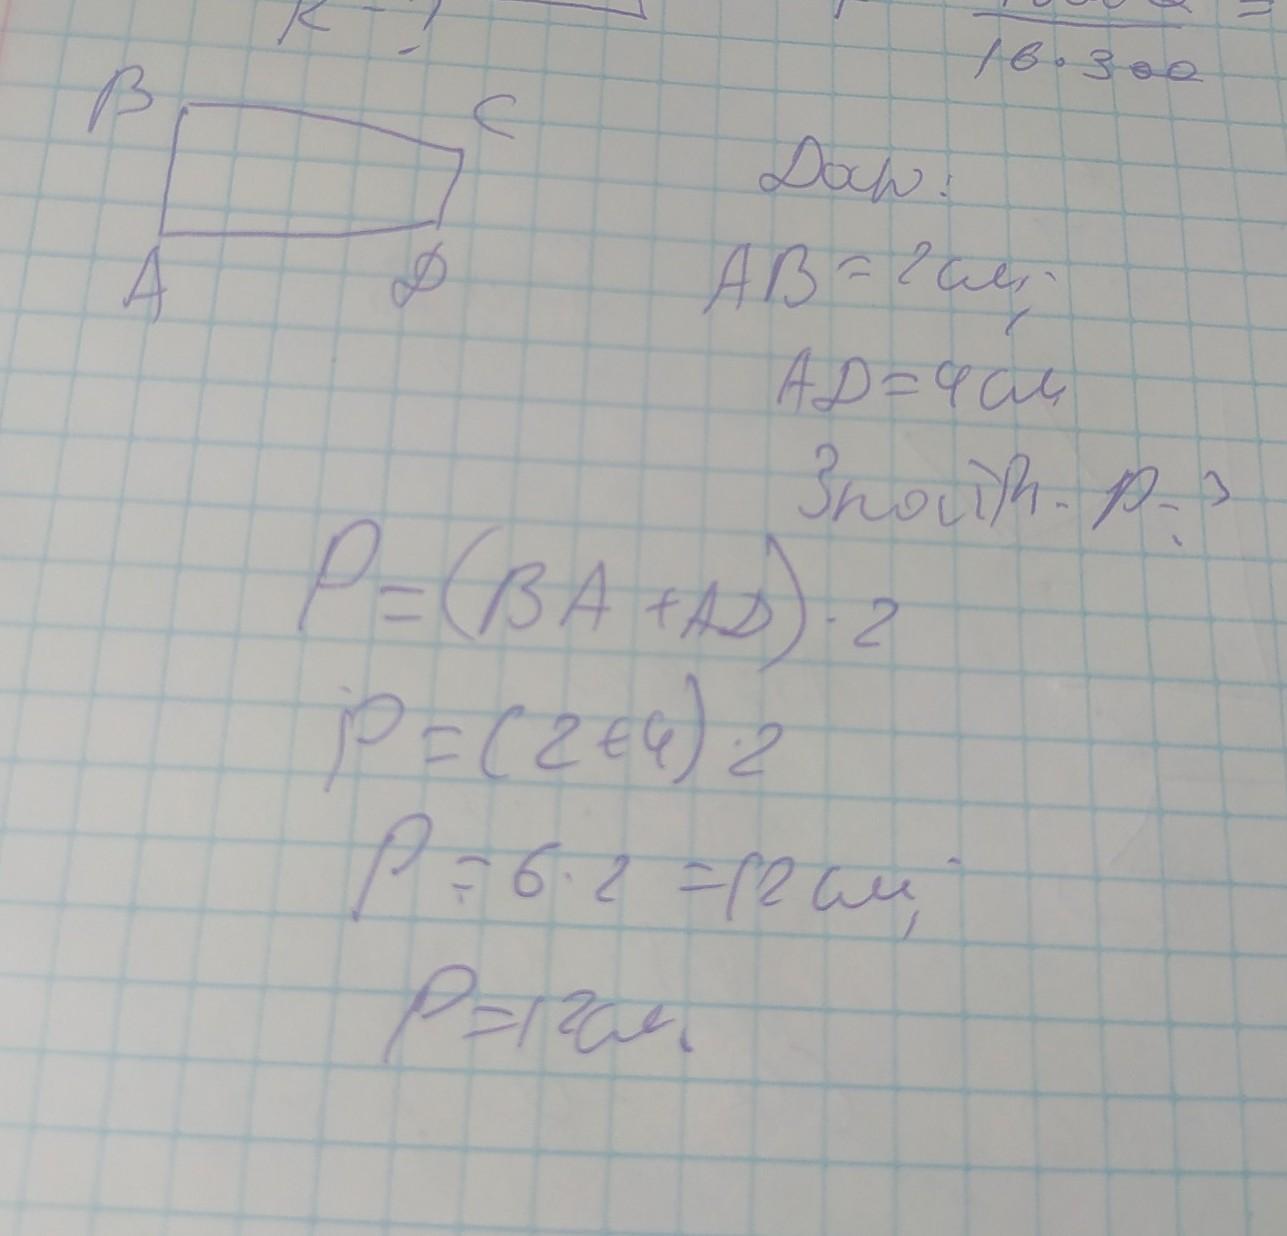 K - ?
16·300 =
B C
A D
Дар:
AB = 2 см;
AD = 4 см
Знайти - P - ?
P = (BA + AD) · 2
P = (2 + 4) · 2
P = 6 · 2 = 12 см;
P = 12 см.